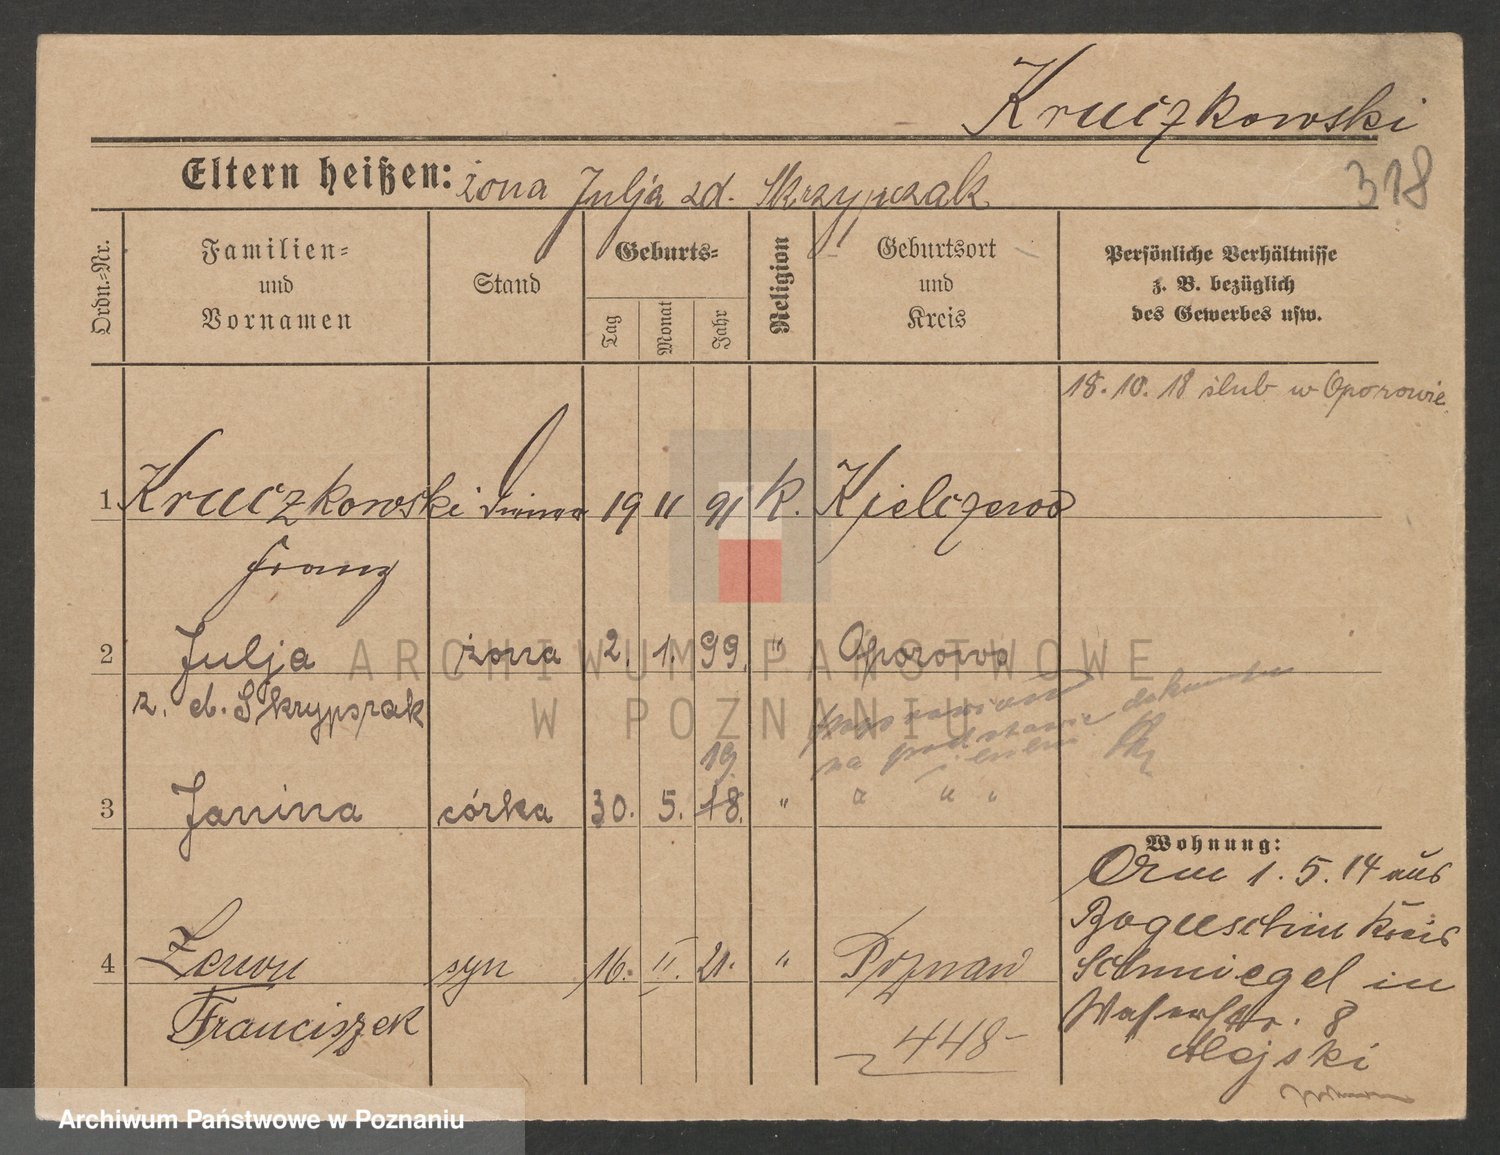 Kruczkowski
Eltern heißen: żona Julja zd. Skrzypczak
318
Ordn.-Nr.
Familien-
und
Vornamen
Stand
Geburts-
Tag
Monat
Jahr
Religion
Geburtsort
und
Kreis
Persönliche Verhältnisse
z. B. bezüglich
des Gewerbes usw.
18. 10. 18 ślub w Oporowie
1 Kruczkowski 19 11 91 K. Kielczewo
Franz
2 Julja żona 2. 1. 99. " Oporowo
z. d. Skrypszak
na podstawie
19
3 Janina córka 30. 5. 18. " " " "
4 Zenon syn 16. II. 21. " Poznań
Franciszek
448-
Wohnung:
1. 5. 14 aus
Bogueschin Kreis
Schmiegel in
Wasserstr. 8
Alejski
ARCHIWUM PAŃSTWOWE
W POZNANIU
Archiwum Państwowe w Poznaniu